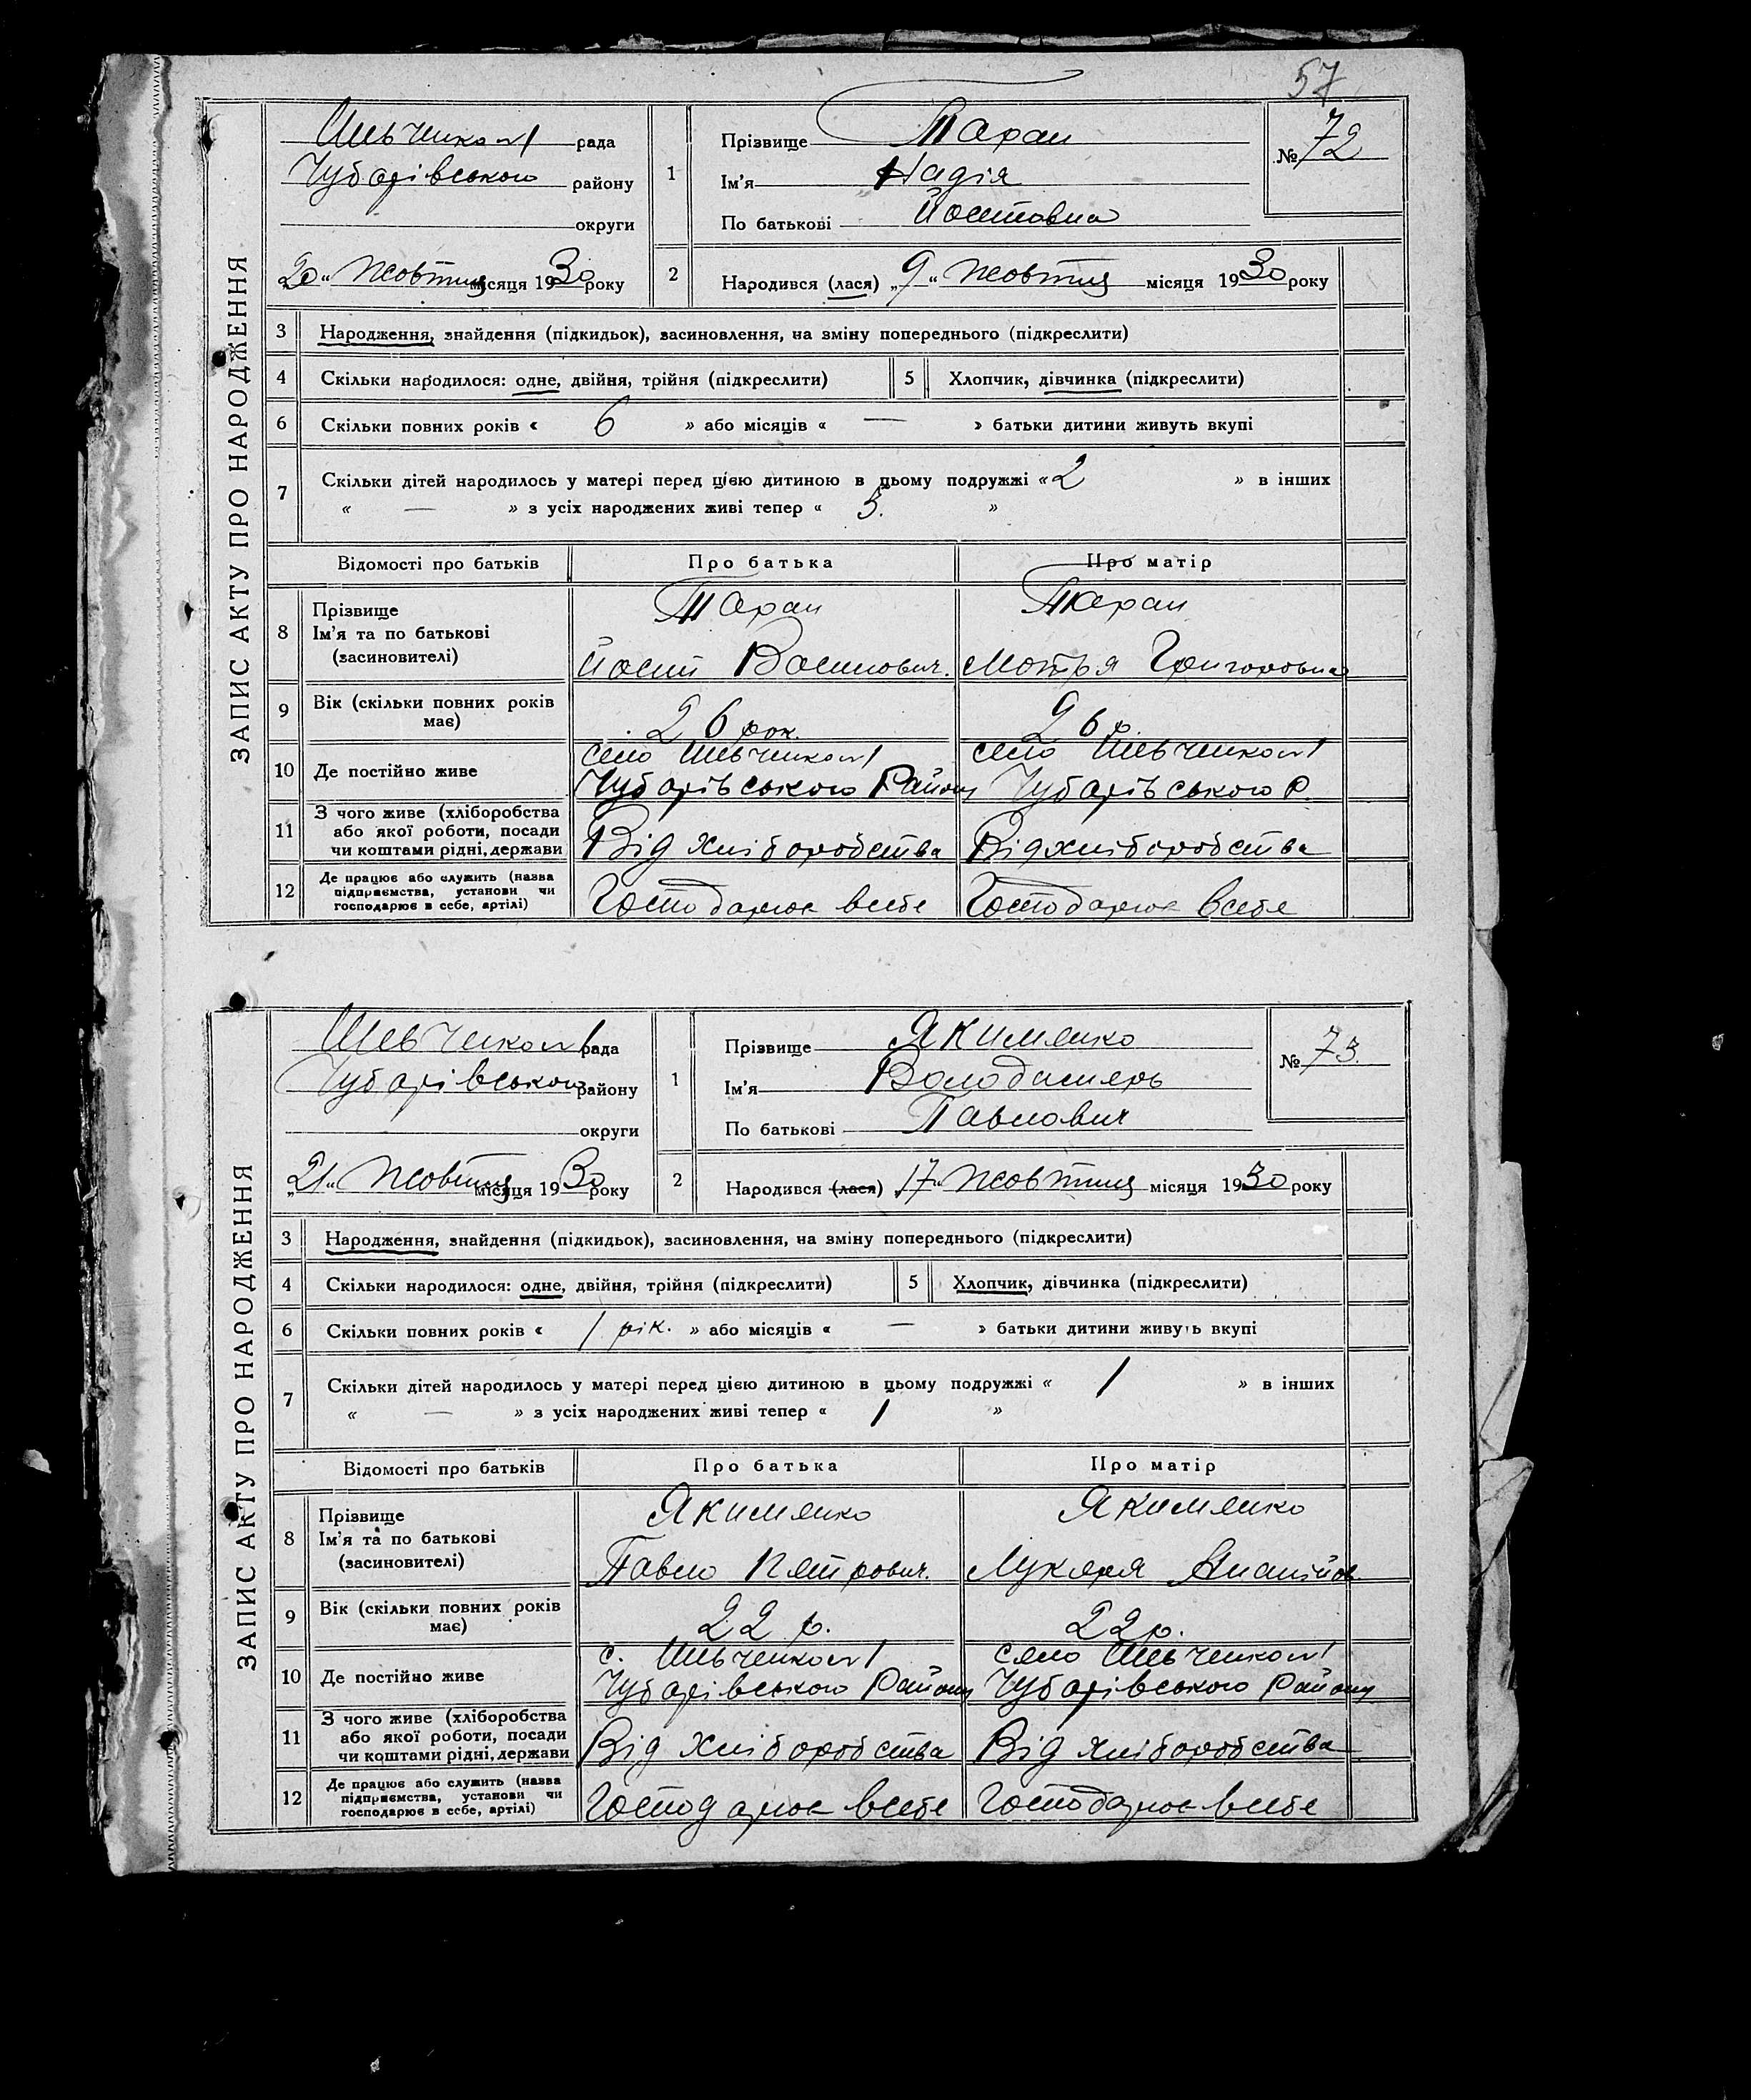 57
ЗАПИС АКТУ ПРО НАРОДЖЕННЯ
Шевченко №1 рада
Чубарівського району
округи
„20“ Жовтня місяця 1930 року
1
Прізвище Таран
Ім'я Надія
По батькові Йосиповна
№ 72
2
Народився (лася) „9“ Жовтня місяця 1930 року
3 Народження, знайдення (підкидьок), засиновлення, на зміну попереднього (підкреслити)
4 Скільки народилося: одне, двійня, трійня (підкреслити) 5 Хлопчик, дівчинка (підкреслити)
6 Скільки повних років « 6 » або місяців « — » батьки дитини живуть вкупі
7 Скільки дітей народилось у матері перед цією дитиною в цьому подружжі « 2 » в інших
« — » з усіх народжених живі тепер « 3. »
Відомості про батьків Про батька Про матір
8 Прізвище
Ім'я та по батькові
(засиновителі)
Таран
Йосип Васильович.
Таран
Мотря Григоровна
9 Вік (скільки повних років
має)
26 рок.
26 р.
10 Де постійно живе
село Шевченко №1
Чубарівського Району
село Шевченко №1
Чубарівського Р.
11 З чого живе (хліборобства
або якої роботи, посади
чи коштами рідні, держави
Від хліборобства
Від хліборобства
12 Де працює або служить (назва
підприємства, установи чи
господарює в себе, артілі)
Господарює всебе
Господарює всебе
ЗАПИС АКТУ ПРО НАРОДЖЕННЯ
Шевченко №1 рада
Чубарівського району
округи
„21“ Жовтня місяця 1930 року
1
Прізвище Якименко
Ім'я Володимерь
По батькові Павлович
№ 73.
2
Народився (лася) „17“ Жовтня місяця 1930 року
3 Народження, знайдення (підкидьок), засиновлення, на зміну попереднього (підкреслити)
4 Скільки народилося: одне, двійня, трійня (підкреслити) 5 Хлопчик, дівчинка (підкреслити)
6 Скільки повних років « 1 рік. » або місяців « — » батьки дитини живуть вкупі
7 Скільки дітей народилось у матері перед цією дитиною в цьому подружжі « 1 » в інших
« — » з усіх народжених живі тепер « 1 »
Відомості про батьків Про батька Про матір
8 Прізвище
Ім'я та по батькові
(засиновителі)
Якименко
Павло Петрович.
Якименко
Лукеря Ананійов.
9 Вік (скільки повних років
має)
22 р.
22 р.
10 Де постійно живе
с. Шевченко №1
Чубарівського Району
село Шевченко №1
Чубарівського Району
11 З чого живе (хліборобства
або якої роботи, посади
чи коштами рідні, держави
Від хліборобства
Від хліборобства
12 Де працює або служить (назва
підприємства, установи чи
господарює в себе, артілі)
Господарює всебе
Господарює всебе